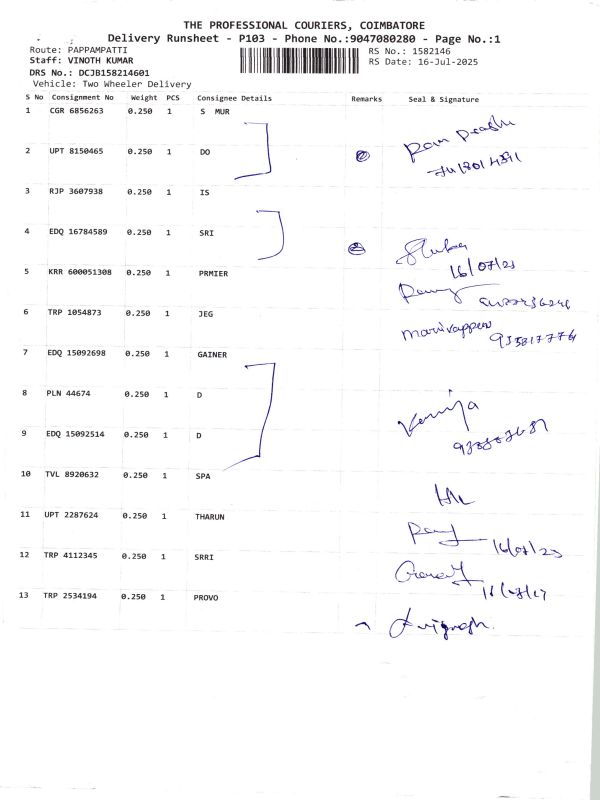 THE PROFESSIONAL COURIERS, COIMBATORE
Delivery Runsheet - P103 - Phone No.:9047080280 - Page No.:1
Route: PAPPAMPATTI
RS No.: 1582146
Staff: VINOTH KUMAR
RS Date: 16-Jul-2025
DRS No.: DCJB158214601
Vehicle: Two Wheeler Delivery
S No Consignment No Weight PCS Consignee Details Remarks Seal & Signature
1 CGR 6856263 0.250 1 S MUR
2 UPT 8150465 0.250 1 DO
3 RJP 3607938 0.250 1 IS
4 EDQ 16784589 0.250 1 SRI
16/07/25
5 KRR 600051308 0.250 1 PRMIER
6 TRP 1054873 0.250 1 JEG
Marivappan
7 EDQ 15092698 0.250 1 GAINER
8 PLN 44674 0.250 1 D
9 EDQ 15092514 0.250 1 D
10 TVL 8920632 0.250 1 SPA
11 UPT 2287624 0.250 1 THARUN
16/07/25
12 TRP 4112345 0.250 1 SRRI
13 TRP 2534194 0.250 1 PROVO